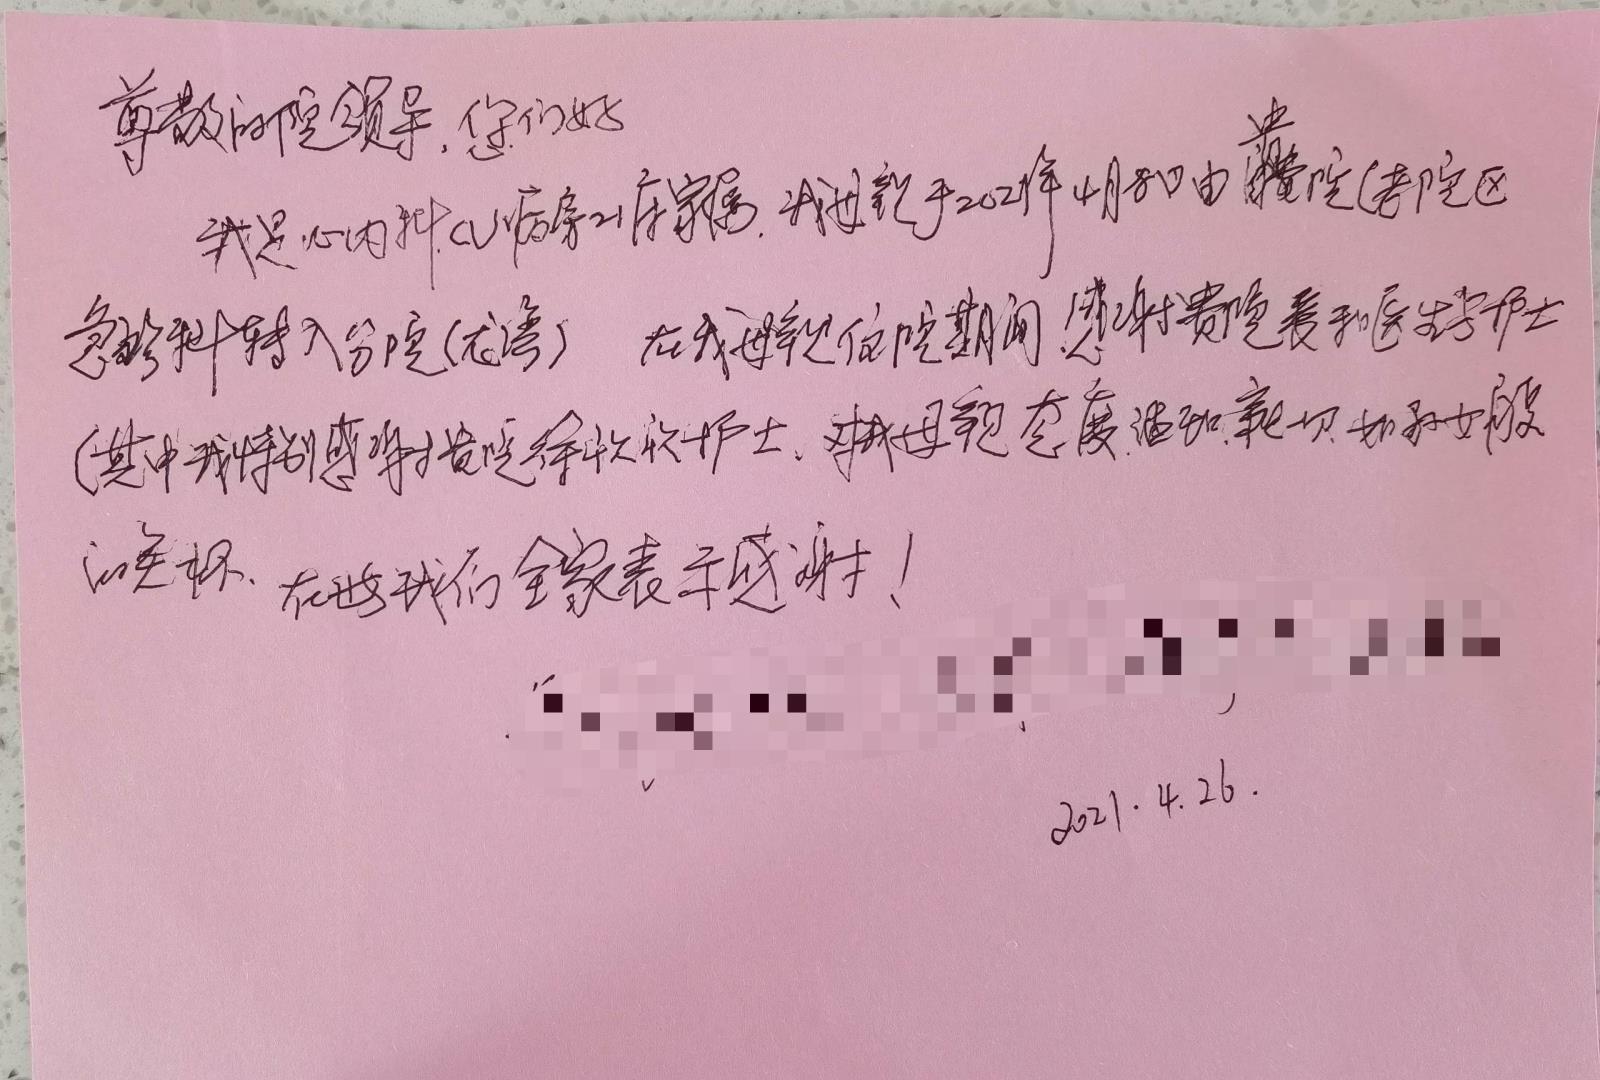 尊敬的院领导,您们好
我是心内科CCU病房21床家属,我母亲于2021年4月8日由贵院(老院区
急诊科转入分院( 在我母亲住院期间感谢贵院 医生 护士
(其中我特别感谢贵院徐 护士、对我母亲态度温和,亲切,如孙女般
的关怀、在此我们全家表示感谢!
2021.4.26.